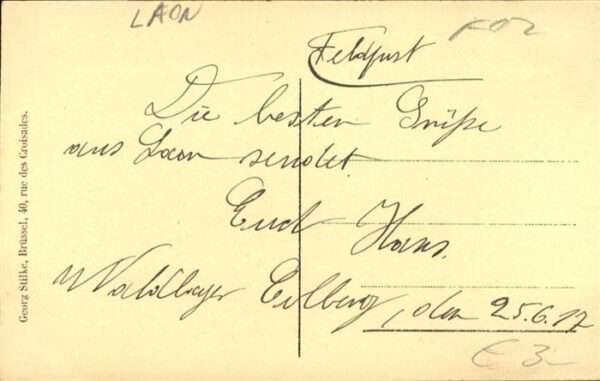 LAON
Feldpost
Die besten Grüße
aus Laon sendet
Euch Hans.
den 25.6.17
€ 3-
Georg Stilke, Brüssel, 40, rue des Croisades.